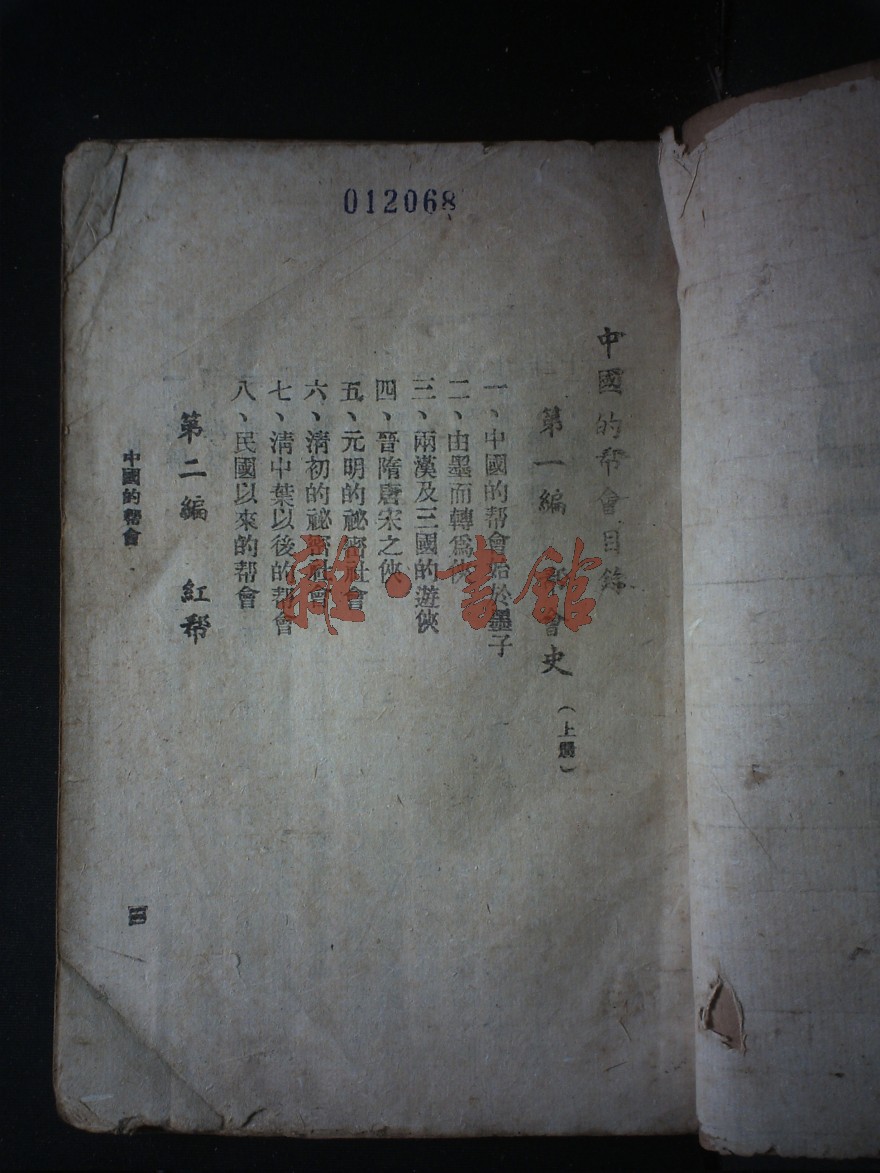 012068
中國的帮會目錄
第一編 帮會史（上冊）
一、中國的帮會始於墨子
二、由墨而轉爲俠
三、兩漢及三國的遊俠
四、晉隋唐宋之俠
五、元明的祕密社會
六、清初的祕密社會
七、清中葉以後的帮會
八、民國以來的帮會
第二編 紅帮
中國的帮會
三
雜·書館